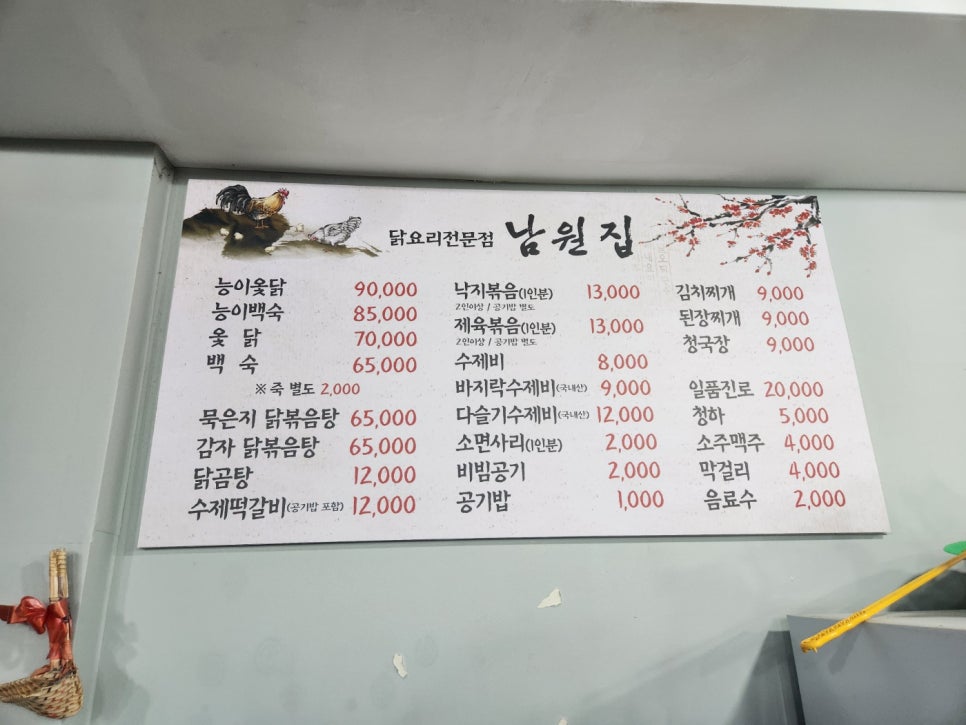 닭요리전문점 남원집
능이옻닭 90,000
능이백숙 85,000
옻 닭 70,000
백 숙 65,000
※ 죽 별도 2,000
묵은지 닭볶음탕 65,000
감자 닭볶음탕 65,000
닭곰탕 12,000
수제떡갈비(공기밥 포함) 12,000
낙지볶음(1인분) 13,000
2인이상 / 공기밥 별도
제육볶음(1인분) 13,000
2인이상 / 공기밥 별도
수제비 8,000
바지락수제비(국내산) 9,000
다슬기수제비(국내산) 12,000
소면사리(1인분) 2,000
비빔공기 2,000
공기밥 1,000
김치찌개 9,000
된장찌개 9,000
청국장 9,000
일품진로 20,000
청하 5,000
소주맥주 4,000
막걸리 4,000
음료수 2,000